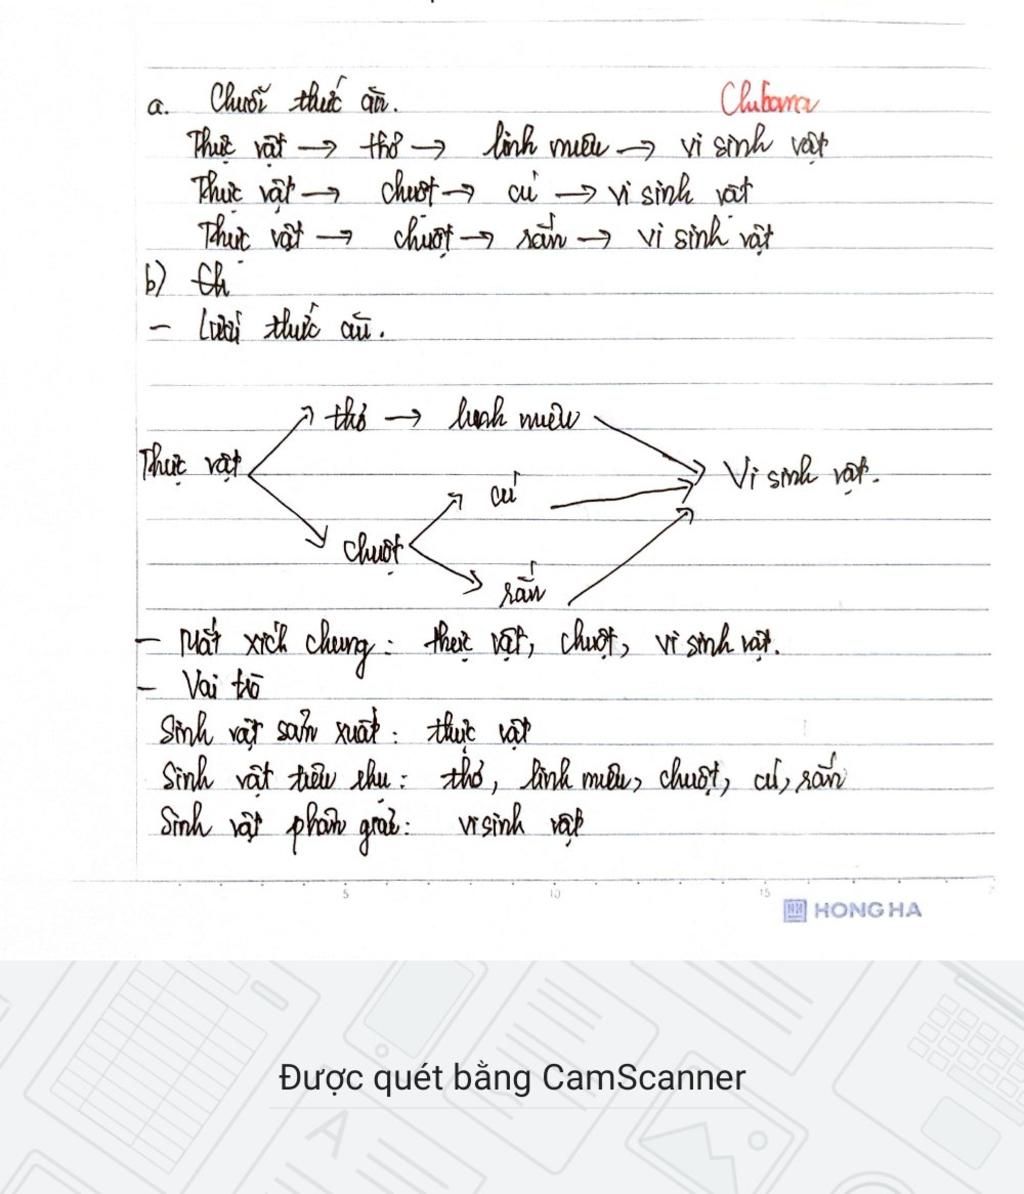 a. Chuỗi thức ăn.
Chubana
Thực vật → thỏ → linh miêu → vi sinh vật
Thực vật → chuột → cú → vi sinh vật
Thực vật → chuột → rắn → vi sinh vật
b) th
- Lưới thức ăn.
thỏ → linh miêu
Thực vật
Vi sinh vật.
cú
chuột
rắn
- Mắt xích chung: thực vật, chuột, vi sinh vật.
- Vai trò
Sinh vật sản xuất: thực vật
Sinh vật tiêu thụ: thỏ, linh miêu, chuột, cú, rắn
Sinh vật phân giải: vi sinh vật
5 10 15
HONG HA
Được quét bằng CamScanner